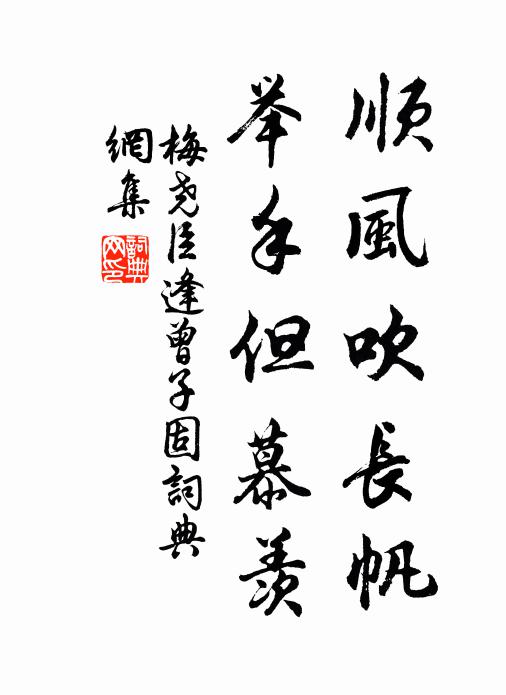 順風吹長帆
举手但慕羨
梅尧臣逢曾子固詞典
網集
詞典
网印